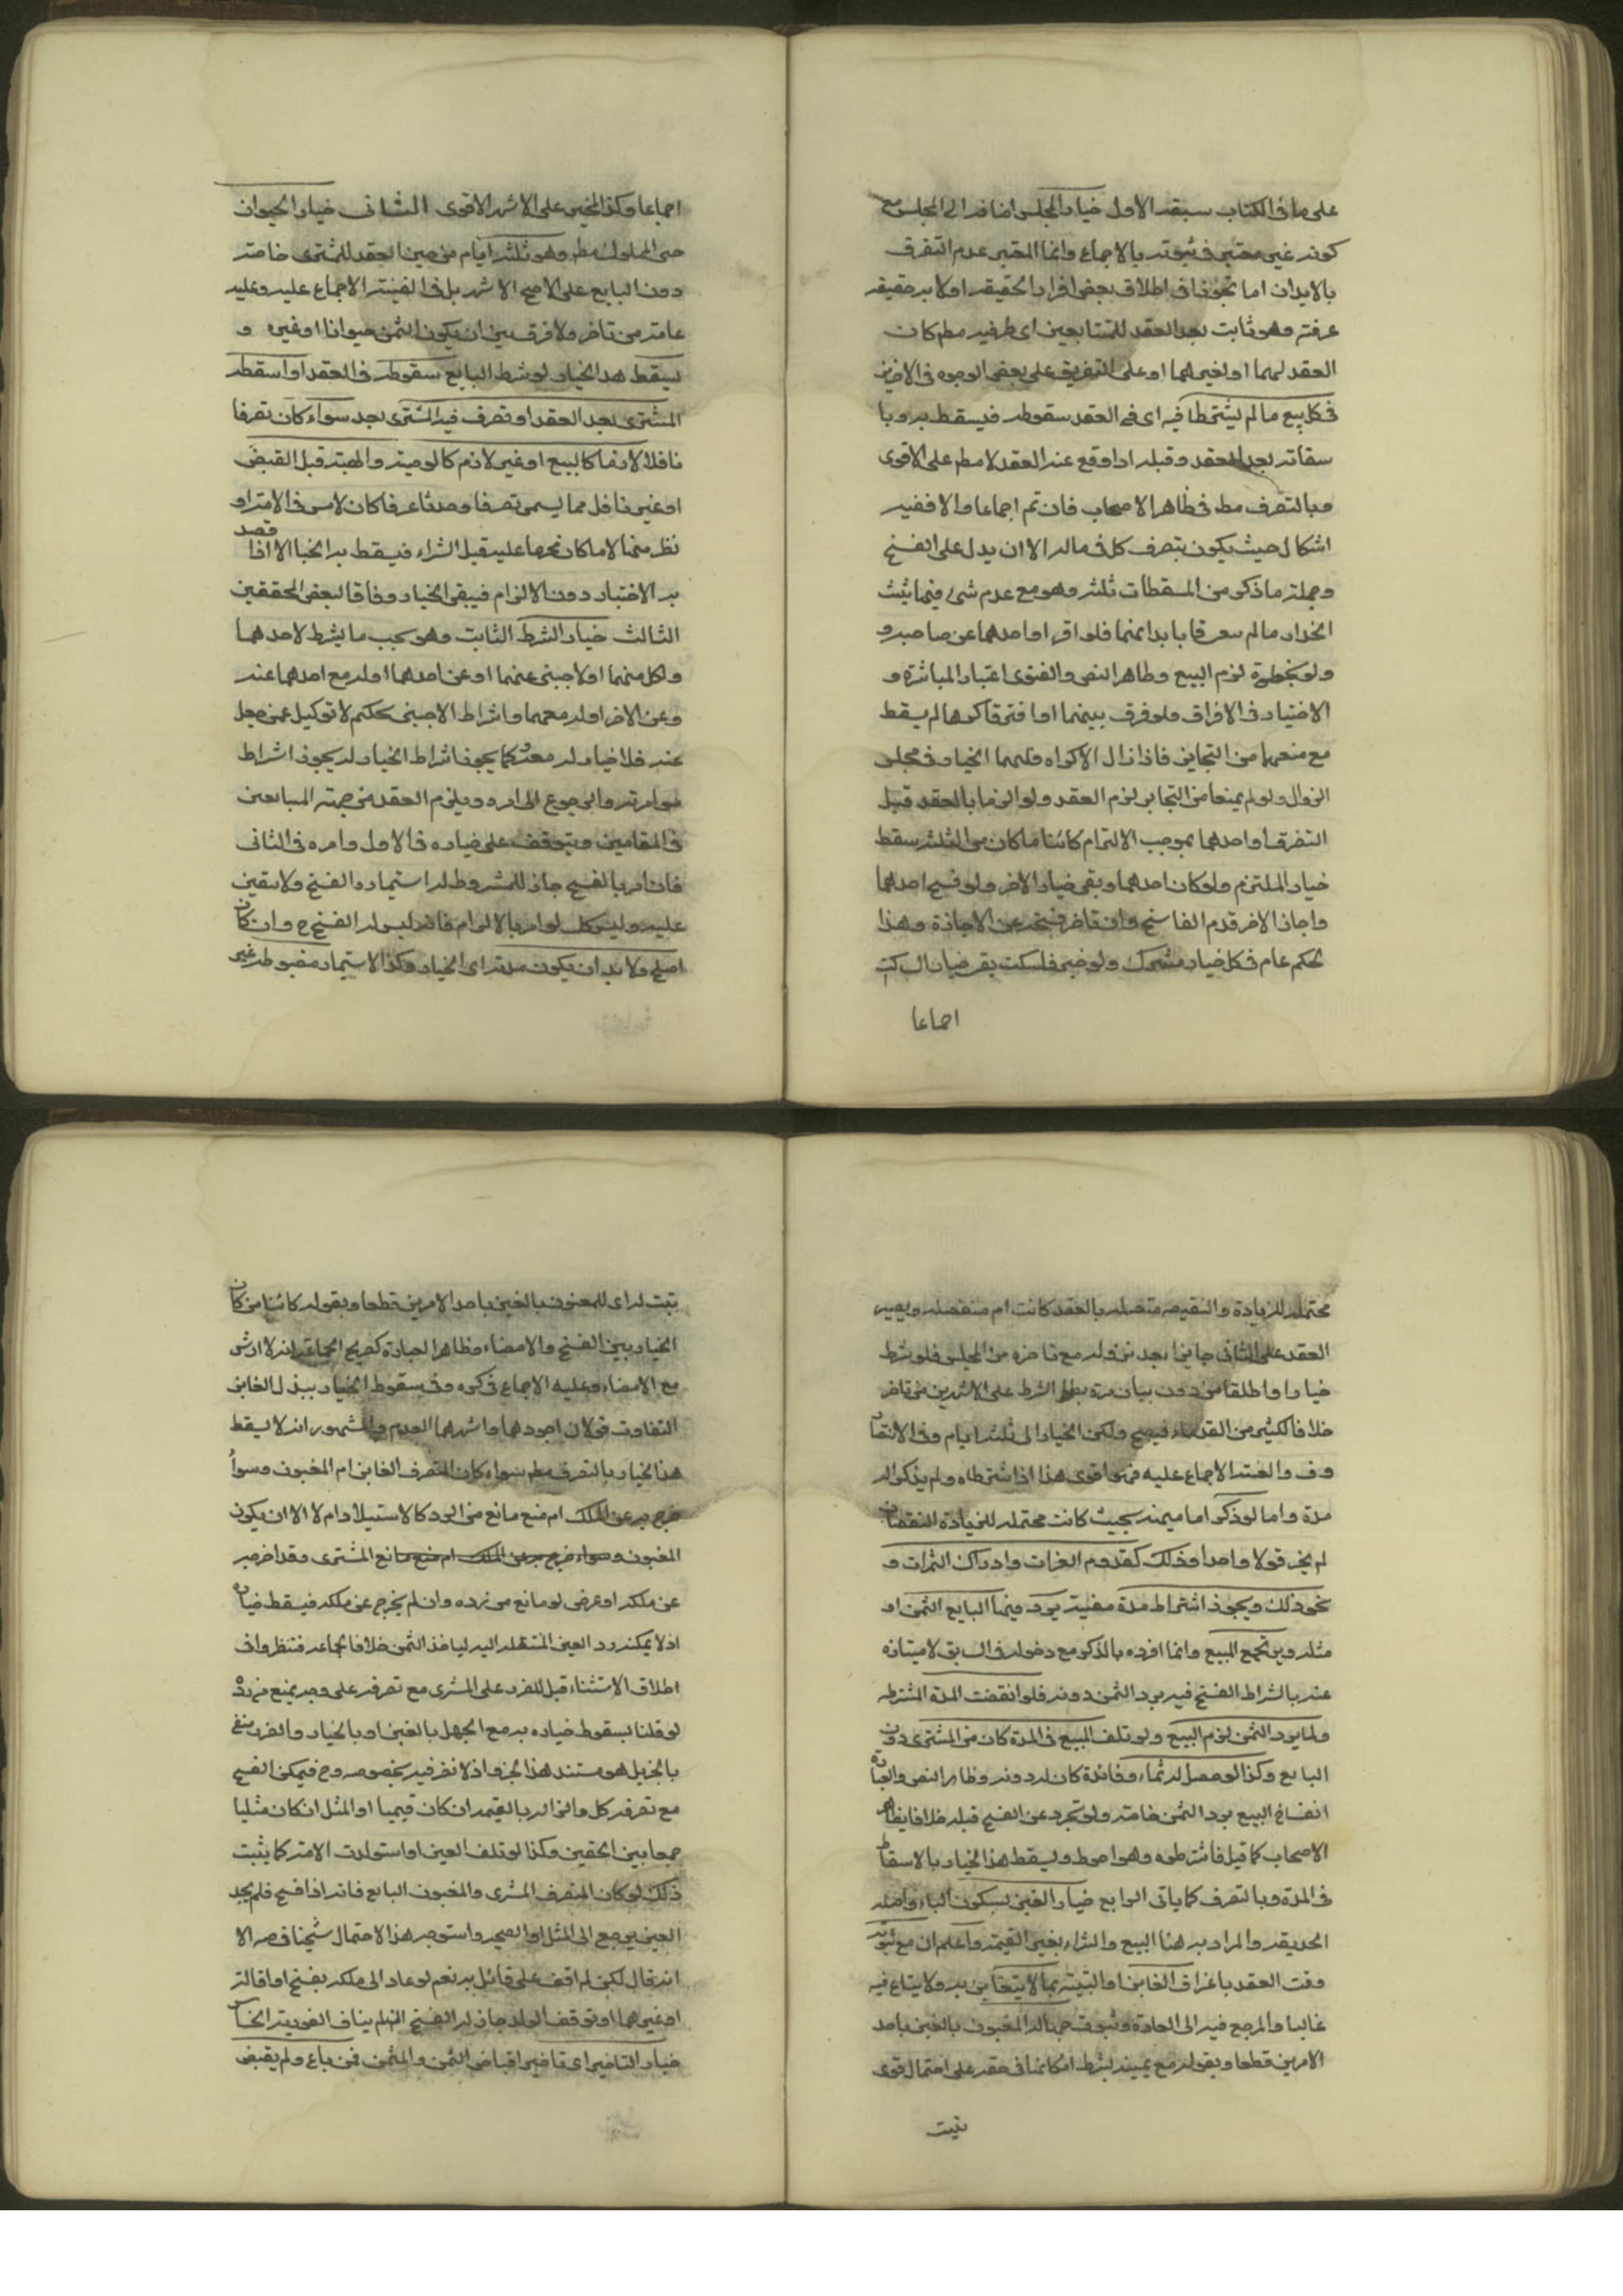 على ما في الكتاب سبعة الاول خيار المجلس اضافة الى المجلس مع
كونه غير معتبر في ثبوته بالاجماع وانما المعتبر عدم التفرق
بالابدان اما تجوزا في اطلاق بعض افراد الحقيقة او لانه حقيقة
عرفية وهو ثابت بعد العقد للمتبايعين اى طرفيه مطم كان
العقد لهما او لغيرهما او على التفريق على بعض الوجوه في الاخيرين
في كل بيع ما لم يشترطا فيه اى في العقد سقوطه فيسقط به وبا
سقاته بعد العقد وقبله اذا وقع عند العقد لا مطم على الاقوى
وبالتصرف مط في ظاهر الاصحاب فان تم اجماعا والا ففيه
اشكال حيث يكون بتصرف كل في ماله الا ان يدل على الفسخ
وجملة ما ذكر من المسقطات ثلثة وهو مع عدم شئ فيهما يثبت
الخيار ما لم يتفرقا بابدانهما فلو افترقا او احدهما عن صاحبه و
ولو بخطوة لزم البيع وظاهر النص والفتوى اعتبار المباشرة و
الاختيار في الافراق فلو فرق بينهما او افترقا كرها لم يسقط
مع منعهما من التخاير فاذا زال الاكراه فلهما الخيار في مجلس
الزوال ولو لم يمنعا من التخاير لزم العقد ولو الزما بالعقد قبل
التفرق او احدهما بموجب الالتزام كائنا ما كان من الثلثة سقط
خيار الملتزم ولو كان احدهما وبقى خيار الاخر ولو فسخ احدهما
واجاز الاخر قدم الفاسخ وان تاخر فسخه عن الاجازة وهذا
الحكم عام في كل خيار مشترك ولو خير فسكت بقى خيار الساكت
اجماعا
اجماعا وكذا المخير على الاشهر الاقوى الثاني خيار الحيوان
حتى المملوك مطم وهو ثلثة ايام من حين العقد للمشترى خاصة
دون البايع على الاصح الاشهر بل في الغنية الاجماع عليه وعليه
عامة من تاخر ولا فرق بين ان يكون الثمن حيوانا او غيره و
يسقط هذا الخيار لو شرط البايع سقوطه في العقد او اسقطه
المشترى بعد العقد او تصرف فيه المشترى بعد سواء كان تصرفا
ناقلا لازما كالبيع او غير لازم كالوصية والهبة قبل القبض
او غير ناقل مما يسمى تصرفا وحدثا عرفا كان لامس في الامة او
نظر منها الا ما كان محرما عليه قبل الشراء فيسقط به الخيار الا اذا قصد
به الاختبار دون الالزام فيبقى الخيار وفاقا لبعض المحققين
الثالث خيار الشرط الثابت وهو بحسب ما يشرط لاحدهما
ولكل منهما او لاجنبى عنهما او عن احدهما او له مع احدهما عنه
وعن الاخر او له معهما واشتراط الاجنبى تحكيم لا توكيل عمن جعل
عنه فلا خيار له معه وكما يجوز اشتراط الخيار له يجوز اشتراط
مؤامرته والرجوع الى امره ويلزم العقد من جهة المتبايعين
في المقامين ويتوقف على خياره في الاول وامره في الثاني
فان امر بالفسخ جاز للمشروط له استيماره الفسخ ولا يتعين
عليه وليس كك لو امر بالالزام فانه ليس له الفسخ ح وان كان
اصلح ولا بد ان يكون مدته اى الخيار وكذا الاستيمار مضبوطة غير
محتملة للزيادة والنقيصة متصلة بالعقد كانت ام منفصلة ويصير
العقد على الثاني جايزا بعد لزوله مع تاخره من المجلس فلو شرط
خيارا واطلقا من دون بيان مدة بطل الشرط على الاشهر بين من تاخر
خلافا لكثير من القدماء فيصح ولكن الخيار الى ثلثة ايام وفي الانتصار
وف والغنية الاجماع عليه فهو اقوى هذا اذا اشترطاه ولم يذكر اله
مدة واما لو ذكر اما مبهمة بحيث كانت محتملة للزيادة والنقصان
لم يجز قولا واحدا وذلك كقدوم الغزات وادراك الثمرات و
نحو ذلك ويجوز اشتراط مدة معينة يرد فيها البايع الثمن او
مثله ويرتجع المبيع وانما افرده بالذكر مع دخوله في السابق لامتيازه
عنه باشتراط الفسخ فيه برد الثمن دونه فلو انقضت المدة المشترطة
ولما يرد الثمن لزم البيع ولو تلف المبيع في المدة كان من المشترى دون
البايع وكذا لو حصل له نماء وفائدة كان له دونه وظاهر النص والعبارة
انفساخ البيع برد الثمن خاصة ولو تجرد عن الفسخ قبله خلافا لظاهر
الاصحاب كما قيل فاشترطوه وهو احوط ويسقط هذا الخيار بالاسقاط
في المدة وبالتصرف كما ياتى الرابع خيار الغبن بسكون الباء واصله
الخديعة والمراد به هنا البيع والشراء بغير القيمة واعلم ان مع ثبوته
وقت العقد باعتراف الغابن او البينة بما لا يتغابن به ولا يتباع فيه
غالبا والمرجع فيه الى العادة وثبوت جهالة المغبون بالغبن باحد
الامرين قطعا وبقوله مع يمينه بشرط امكانها في حقه على احتمال قوى
يثبت
يثبت له اى للمغبون بالغبن باحد الامرين قطعا وبقوله كائنا من كان
الخيار بين الفسخ والامضاء وظاهر العبارة كصريح الجماعة انه لا ارش
مع الامضاء وعليه الاجماع في كره وفي سقوط الخيار ببذل الغابن
التفاوت قولان اجودهما واشهرهما العدم والمشهور انه لا يسقط
هذا الخيار بالتصرف مطم سواء كان المتصرف الغابن ام المغبون وسواء
خرج به عن الملك ام منع مانع من الرد كالاستيلاد ام لا الا ان يكون
المغبون وسواء خرج به عن الملك ام منع مانع المشترى وقد اخرجه
عن ملكه او عرض له مانع من رده وان لم يخرج عن ملكه فيسقط خياره
اذ لا يمكنه رد العين المنتقلة اليه لياخذ الثمن خلافا لجماعة فنظروا في
اطلاق الاستثناء قبل للضرر على المشترى مع تصرفه على وجه يمنع من رده
لو قلنا بسقوط خياره به مع الجهل بالغبن او بالخيار والضرر منفى
بالخبر بل هو مستند هذا الخيار اذ لا نص فيه بخصوصه وح فيمكن الفسخ
مع تصرفه كك والزامه بالقيمة ان كان قيميا او المثل ان كان مثليا
جمعا بين الحقين وكذا لو تلف العين او استولدت الامة كما يثبت
ذلك لو كان المتصرف المشترى والمغبون البايع فانه اذا فسخ فلم يجد
العين يرجع الى المثل او القيمة واستوجه هذا الاحتمال شيخنا في ضه الا
انه قال لكن لم اقف على قائل به نعم لو عاد الى ملكه بفسخ او اقالة
او غيرهما او توقف الولد جاز له الفسخ ان لم يناف الفورية الخامس
خيار التاخير اى تاخير اقباض الثمن والمثمن فمن باع ولم يقبض